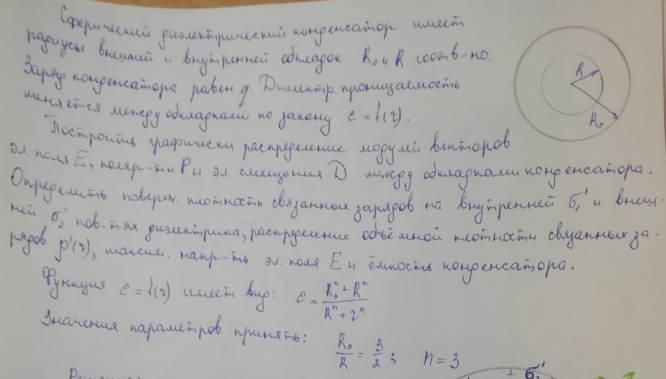 Сферический диэлектрический конденсатор имеет
радиусы внешней и внутренней обкладок R₀ и R соотв-но.
Заряд конденсатора равен q. Диэлектр. проницаемость
меняется между обкладками по закону ε = f(r).
Построить графически распределение модулей векторов
эл. поля E, поляр-ти P и эл. смещения D между обкладками конденсатора.
Определить поверхн. плотность связанных зарядов на внутренней σ₁' и внеш-
ней σ₂' пов-тях диэлектрика, распределение объёмной плотности связанных за-
рядов ρ'(r), максим. напр-ть эл. поля E и ёмкость конденсатора.
Функция ε = f(r) имеет вид: ε = (R₀ⁿ + Rⁿ)/(Rⁿ + rⁿ)
Значения параметров принять: R₀/R = 3/2; n = 3
R
R₀
+ σ₂'